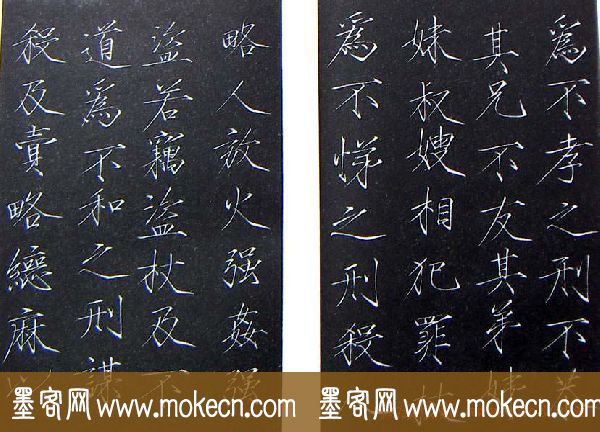 爲不孝之刑不恭
其兄不友其弟姊
妹叔嫂相犯罪杖
爲不悌之刑殺
略人放火强姦强
盜若竊盜杖及不
道爲不和之刑謀
殺及賣略緦麻
墨客网 www.mokecn.com 墨客网 www.mokecn.com